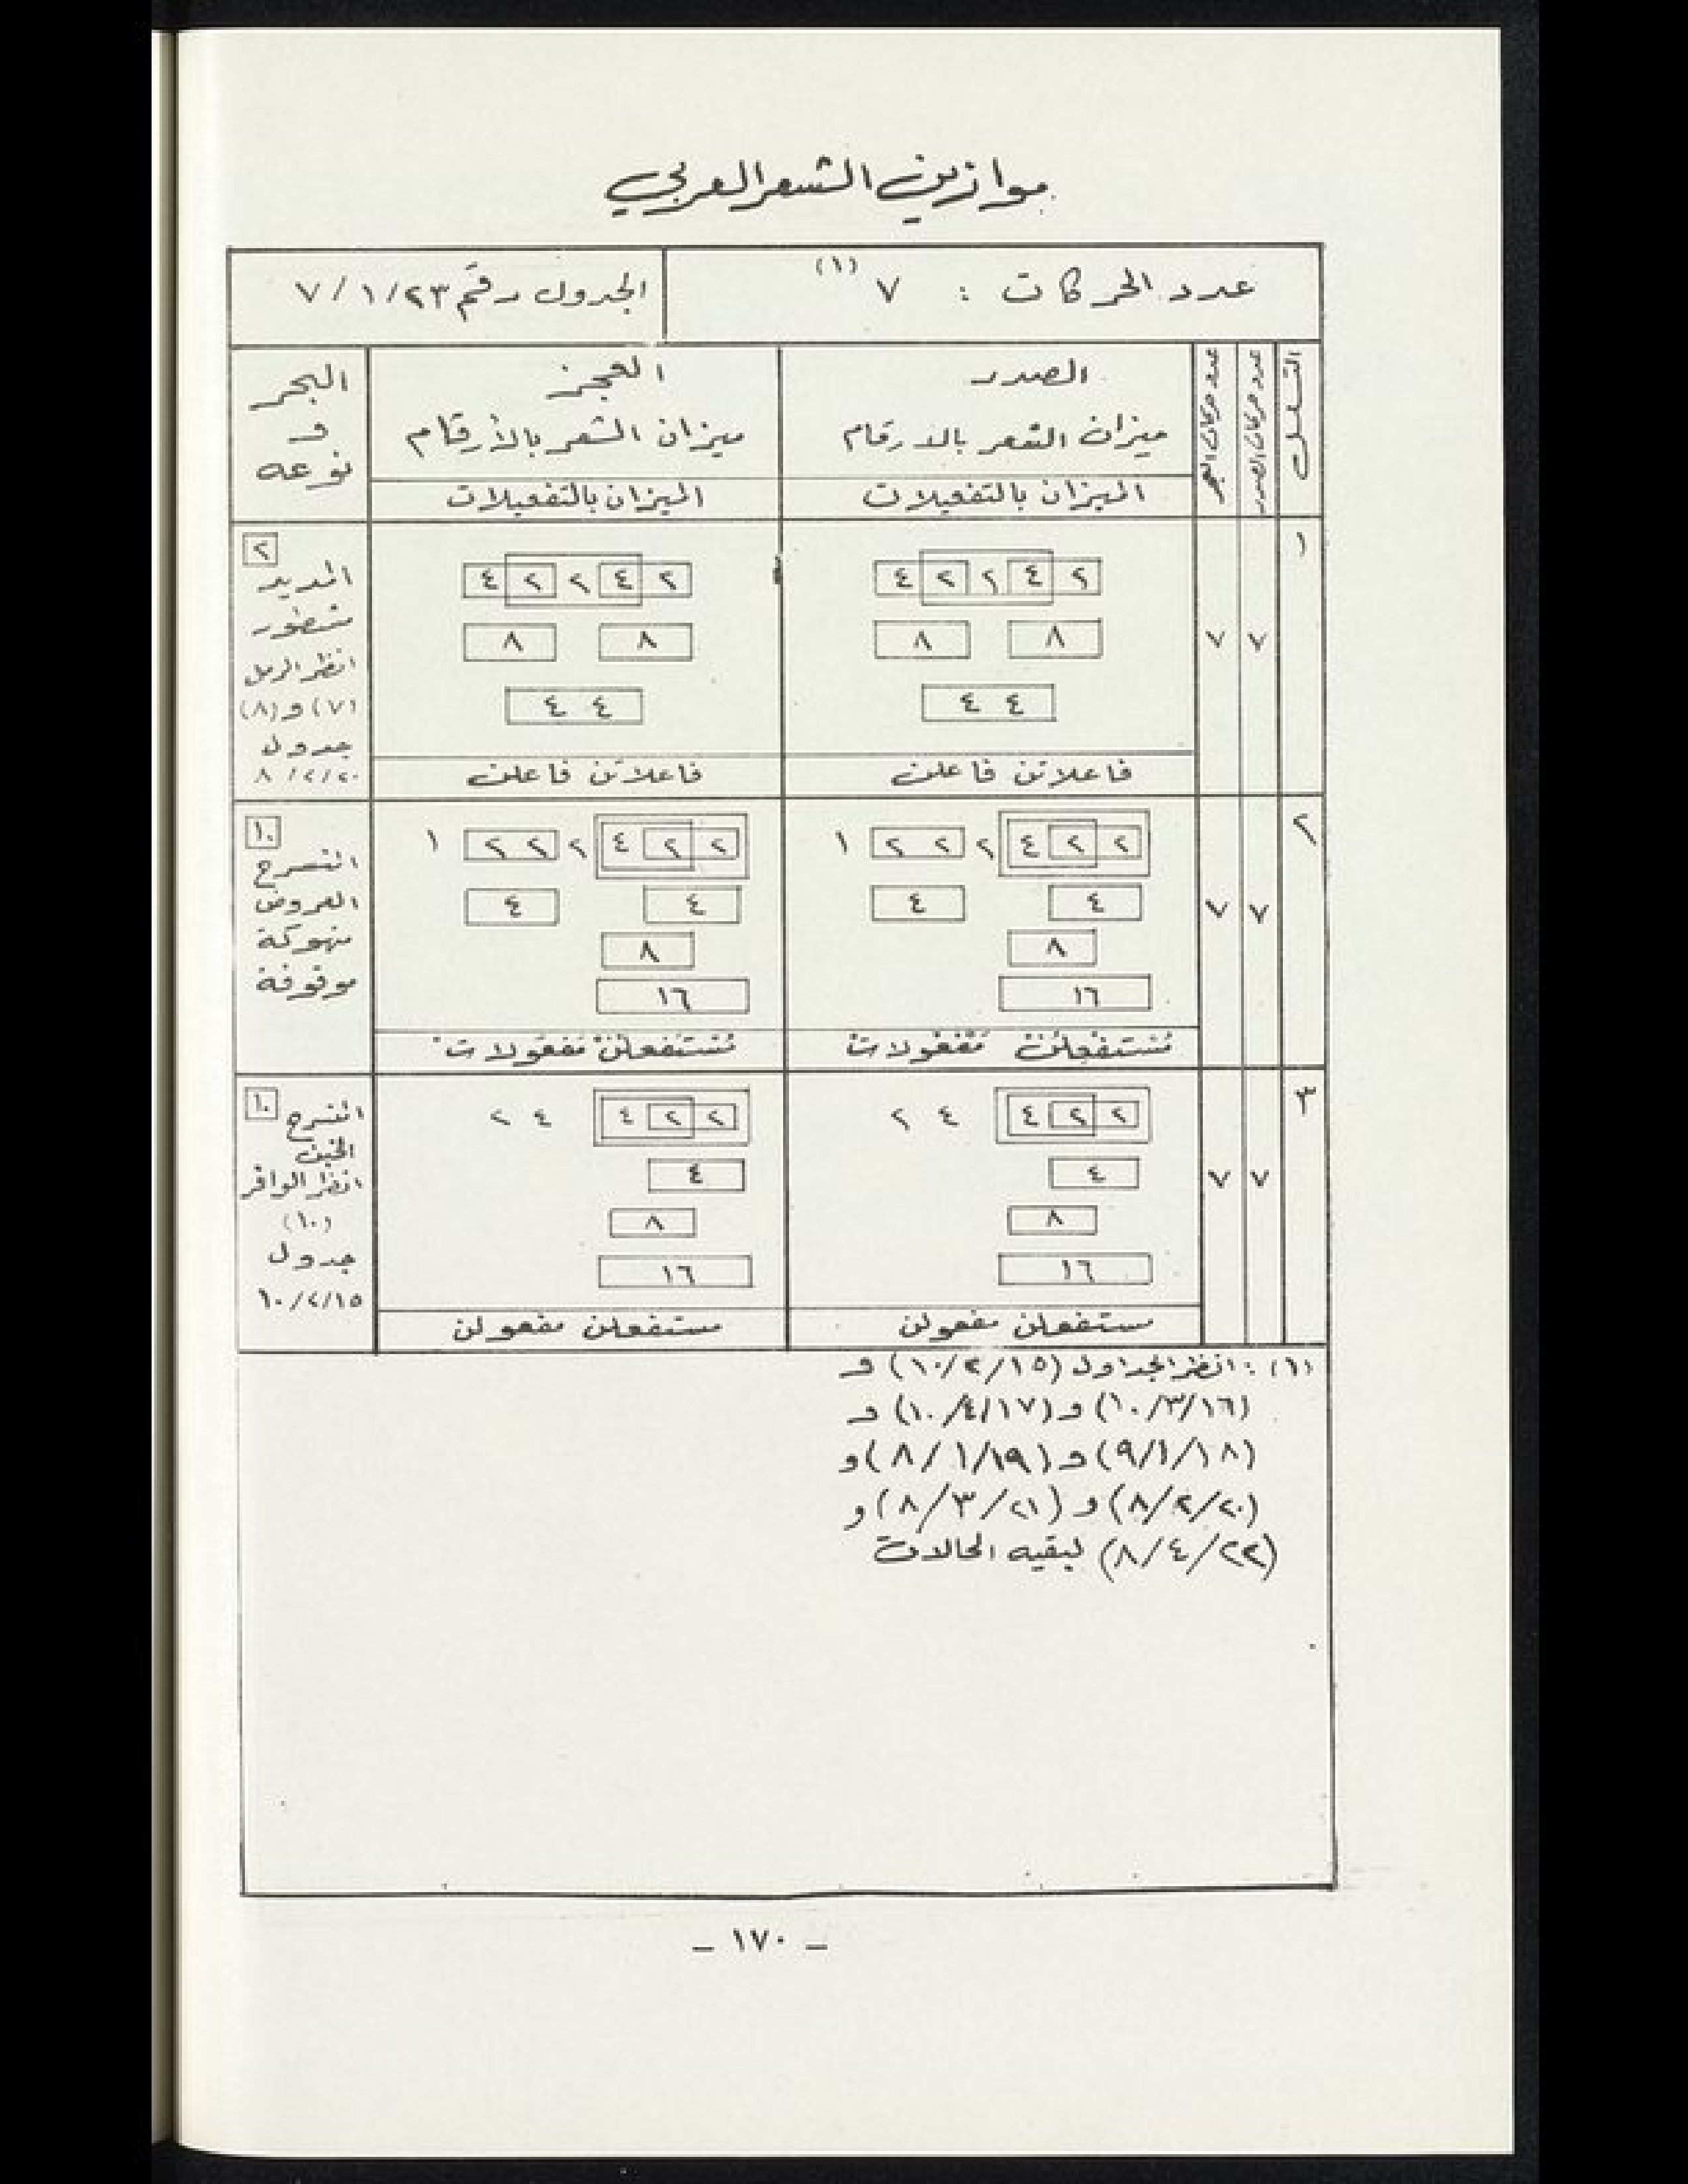 موازين الشعر العربي
عدد الحركات : ٧ (١)
الجدول رقم ٢٣/١/٧
التسلسل
عدد حركات الصدر
عدد حركات العجز
الصدر
ميزان الشعر بالارقام
الميزان بالتفعيلات
العجز
ميزان الشعر بالأرقام
الميزان بالتفعيلات
البحر
و
نوعه
١
٧
٧
٢ ٤ ٢ ٢ ٤
٨ ٨
٤ ٤
فاعلاتن فاعلن
٢ ٤ ٢ ٢ ٤
٨ ٨
٤ ٤
فاعلاتن فاعلن
٢
المديد
مشطور
انظر الرمل
(٧) و (٨)
جدول
٨/٢/٢٠
٢
٧
٧
٢ ٢ ٤ ٢ ٢ ٢ ١
٤ ٤
٨
١٦
مُسْتَفْعِلُنْ مَفْعُولاتْ
٢ ٢ ٤ ٢ ٢ ٢ ١
٤ ٤
٨
١٦
مُسْتَفْعِلُنْ مَفْعُولاتْ
١٠
المنسرح
العروض
منهوكة
موقوفة
٣
٧
٧
٢ ٢ ٤ ٤ ٢
٤
٨
١٦
مستفعلن مفعولن
٢ ٢ ٤ ٤ ٢
٤
٨
١٦
مستفعلن مفعولن
١٠
المنسرح
الخبن
انظر الوافر
(١٠)
جدول
١٠/٢/١٥
(١) : انظر الجداول (١٠/٢/١٥) و
(١٠/٣/١٦) و (١٠/٤/١٧) و
(٩/١/١٨) و (٨/١/١٩) و
(٨/٢/٢٠) و (٨/٣/٢١) و
(٨/٤/٢٢) لبقيه الحالات
– ١٧٠ –